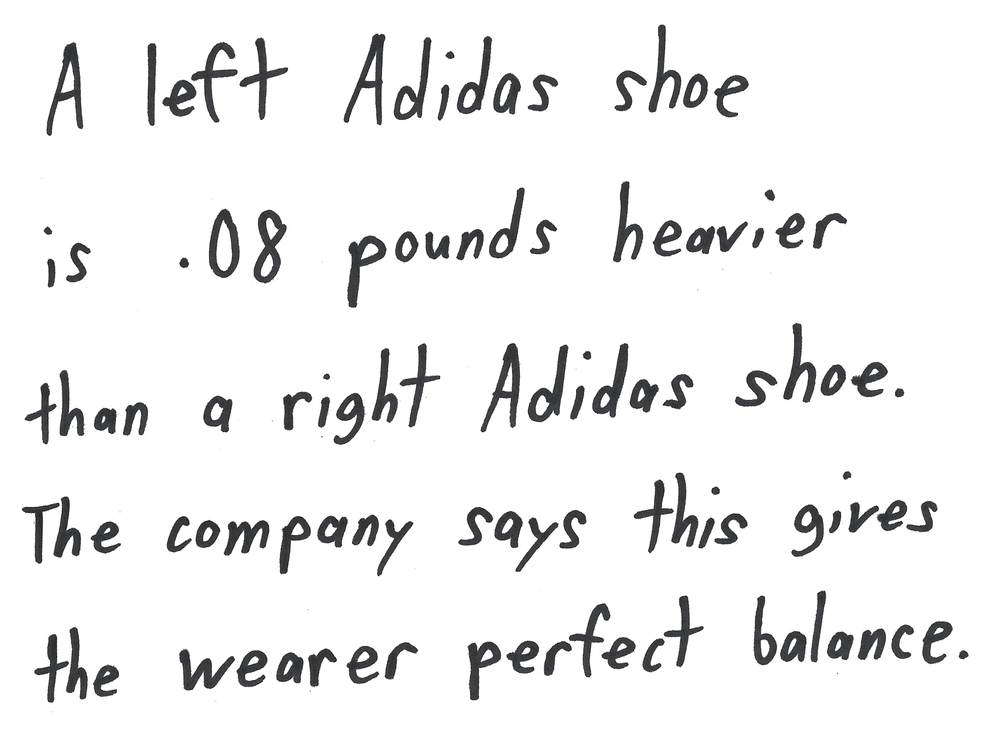 A left Adidas shoe
is .08 pounds heavier
than a right Adidas shoe.
The company says this gives
the wearer perfect balance.